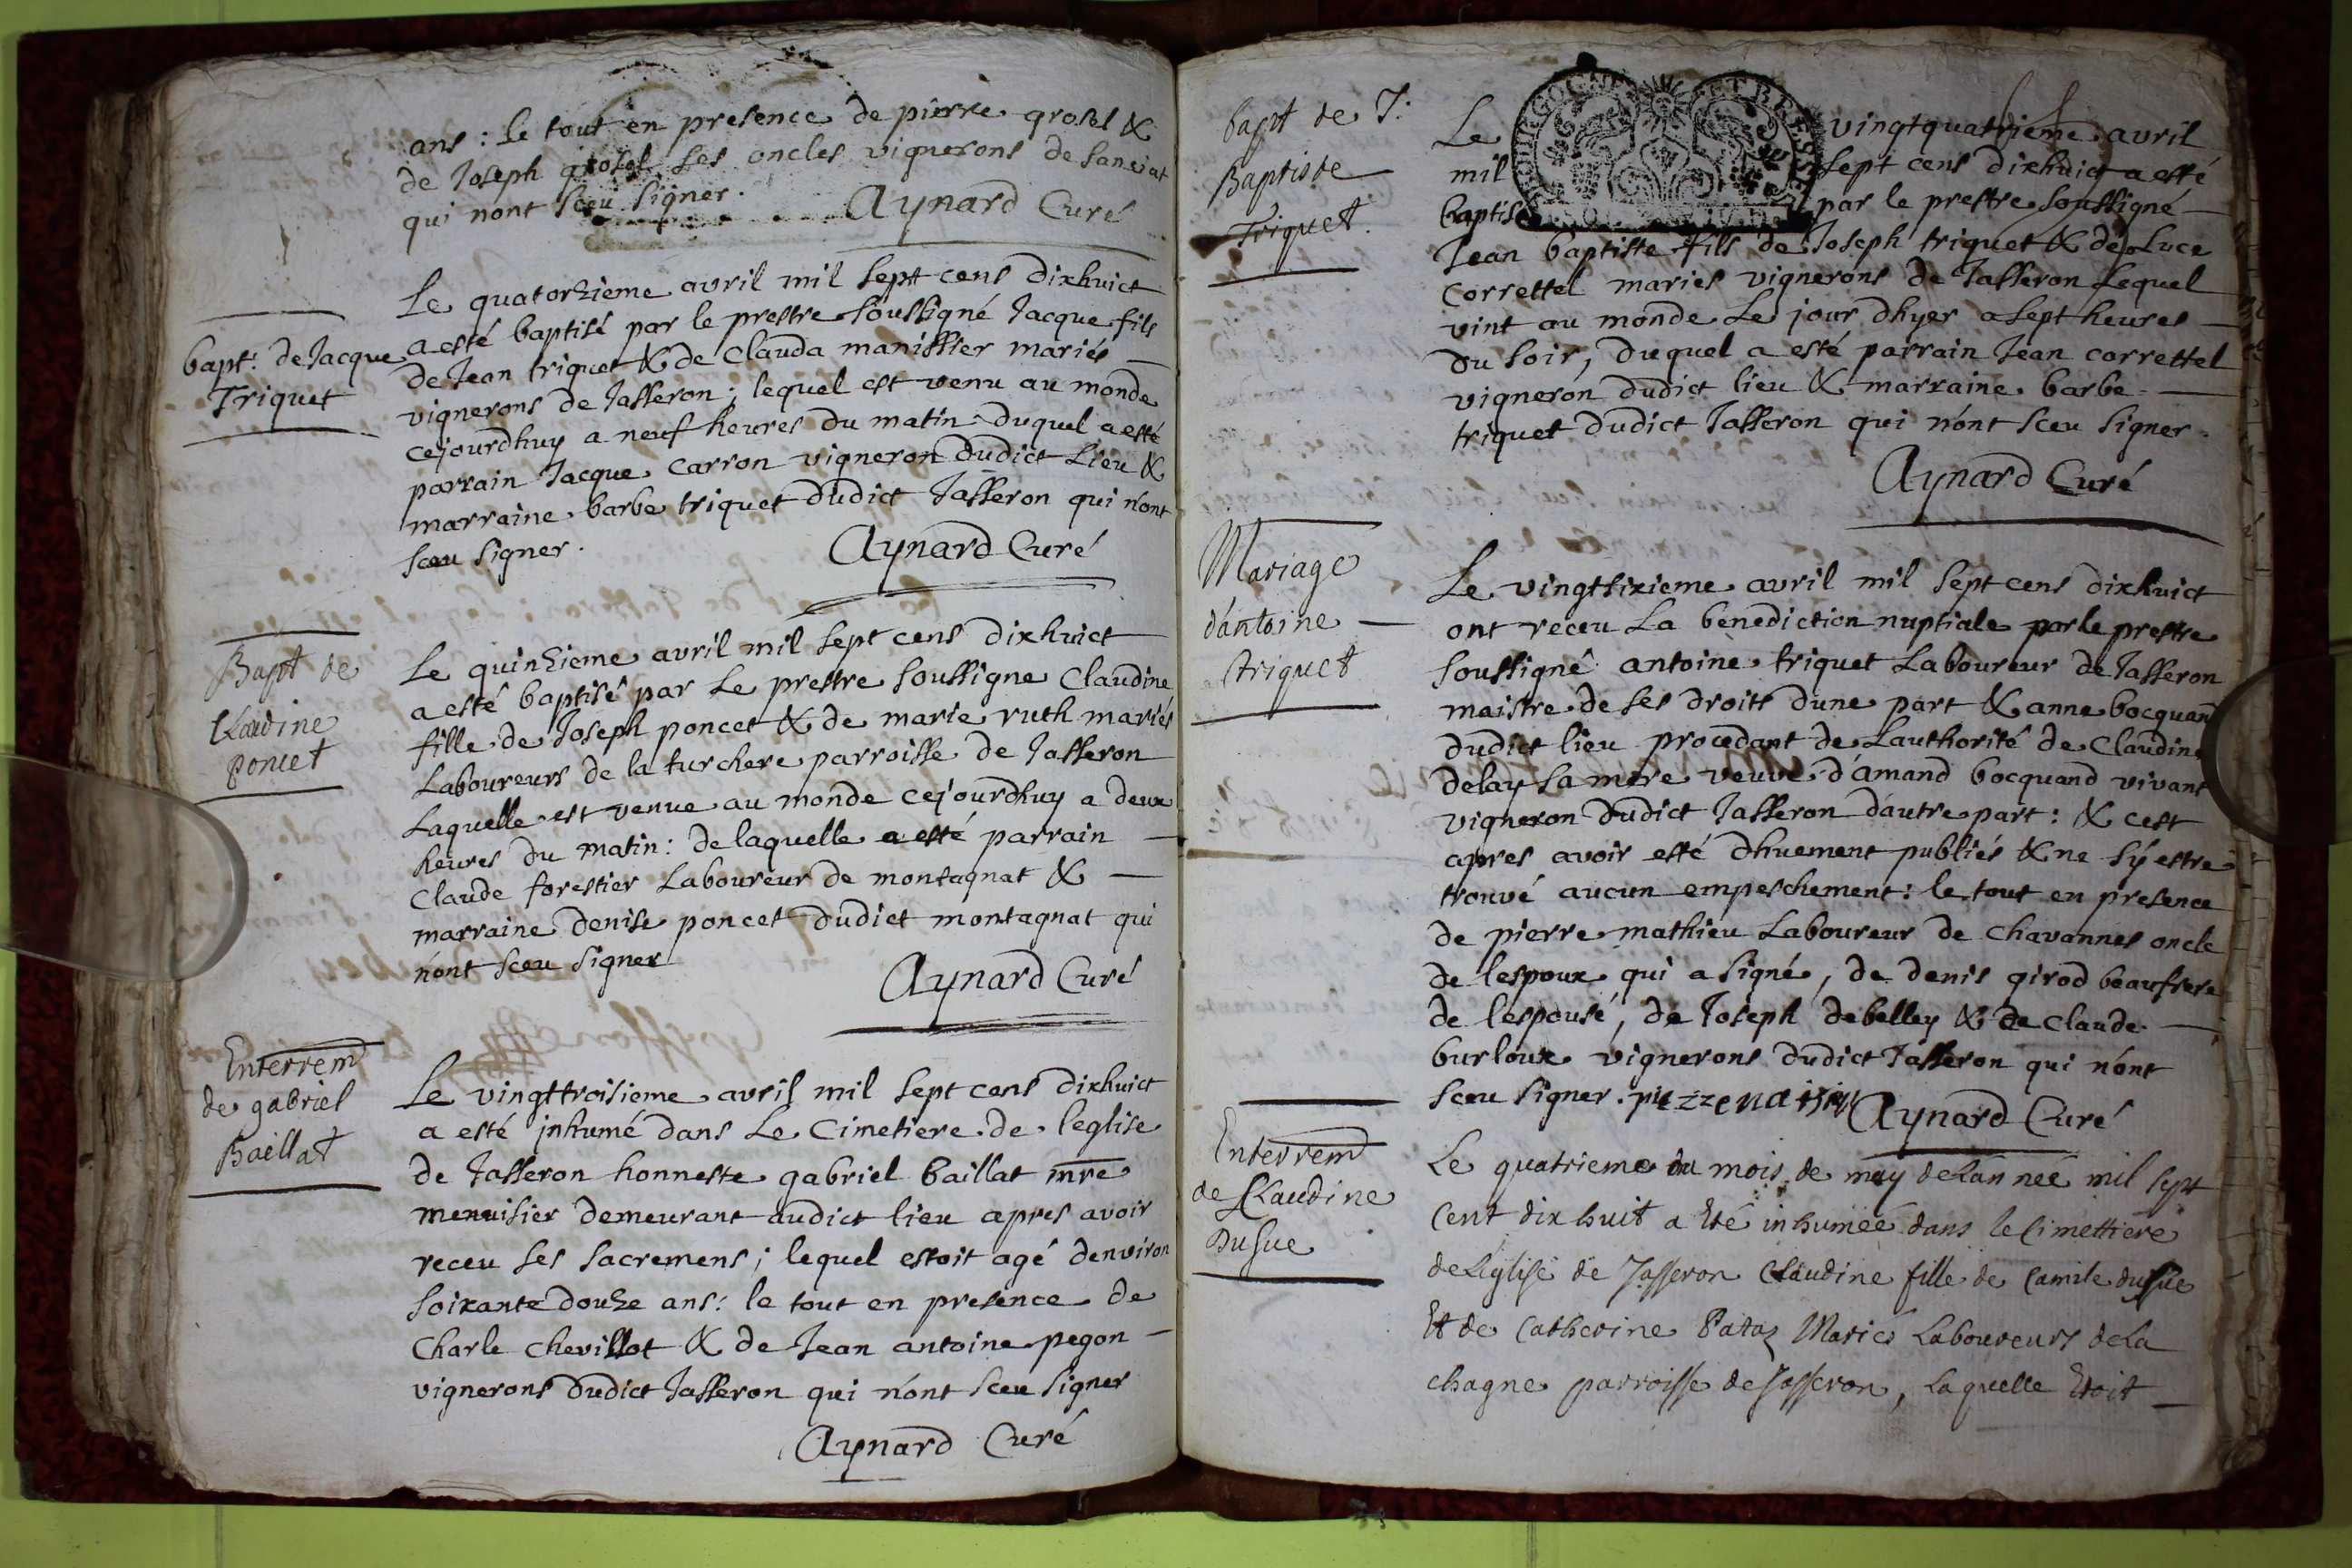 ans : le tout en presence de pierre grosel &
de Joseph grosel ses oncles vignerons de Sanciat
qui nont sceu signer.
Aynard Curé
bapt. de Jacque
Triquet
Le quatorzieme avril mil sept cens dixhuict
a esté baptisé par le prestre soussigné Jacque fils
de Jean triquet & de Clauda manissier mariés
vignerons de Jasseron ; lequel est venu au monde
cejourdhuy a neuf heures du matin duquel a esté
parrain Jacque Carron vigneron dudict Lieu &
marraine barbe triquet dudict Jasseron qui nont
sceu signer.
Aynard Curé
Bapt de
Claudine
poncet
Le quinzieme avril mil sept cens dixhuict
a esté baptisé par Le prestre soussigne Claudine
fille de Joseph poncet & de marie ruth mariés
Laboureurs de la turchere parroisse de Jasseron
Laquelle est venue au monde cejourdhuy a deux
heures du matin : de laquelle a esté parrain
Claude forestier Laboureur de montagnat &
marraine denise poncet dudict montagnat qui
nont sceu signer
Aynard Curé
Enterremt
de gabriel
Baillat
Le vingttroisieme avril mil sept cens dixhuict
a esté jnhumé dans Le Cimetiere de leglise
de Jasseron honneste gabriel baillat mre
menuisier demeurant audict lieu apres avoir
receu ses sacremens ; lequel estoit agé denviron
soixante douze ans : le tout en presence de
Charle chevillot & de Jean antoine pegon
vignerons dudict Jasseron qui nont sceu signer
Aynard Curé
bapt de J:
Baptiste
Triquet.
Le vingtquatrieme avril
mil sept cens dixhuict a esté
baptisé par le prestre soussigné
Jean baptiste fils de Joseph triquet & de Luce
Correttel mariés vignerons de Jasseron Lequel
vint au monde Le jour dhyer a sept heures
du soir, duquel a esté parrain Jean correttel
vigneron dudict lieu & marraine barbe
triquet dudict Jasseron qui nont sceu signer.
Aynard Curé
Mariage
dantoine
triquet
Le vingtsixieme avril mil sept cens dixhuict
ont receu La benediction nuptiale par le prestre
soussigné antoine triquet Laboureur de Jasseron
maistre de ses droits dune part & anne bocquand
dudict lieu procedant de Lauthorité de Claudine
delay sa mere veuve d'amand bocquand vivant
vigneron dudict Jasseron dautre part : & cest
apres avoir esté dhuement publiés & ne sy estre
trouvé aucun empeschement : le tout en presence
de pierre mathieu Laboureur de Chavannes oncle
de lespoux qui a signé, de denis girod beaufrere
de lespouse, de Joseph debelley & de Claude
burloux vignerons dudict Jasseron qui nont
sceu signer.
Aynard Curé
Enterremt
de Claudine
Dusue
Le quatrieme du mois de may de Lannee mil sept
Cent dix huit a eté inhumée dans le Cimettiere
de Leglise de Jasseron Claudine fille de Camile dusue
Et de Catherine Mariés Laboureurs de La
chagne parroisse de Jasseron, Laquelle Etoit